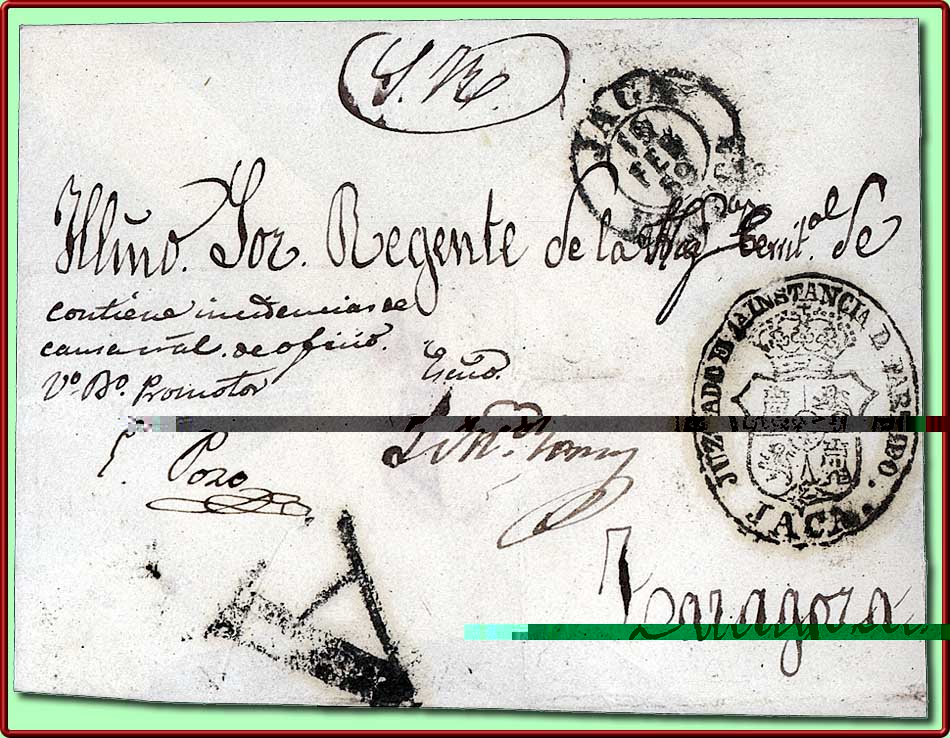 S. N.
JACA
18 FEB 59
Illmo. Sor. Regente de la Territ.al de
contiene incidencias de
causa crâl. de oficio.
Vº. Bº. Promotor
Escño.
Pozo
JUZGADO DE 1ª INSTANCIA D. PARTIDO.
JACA.
Zaragoza
A